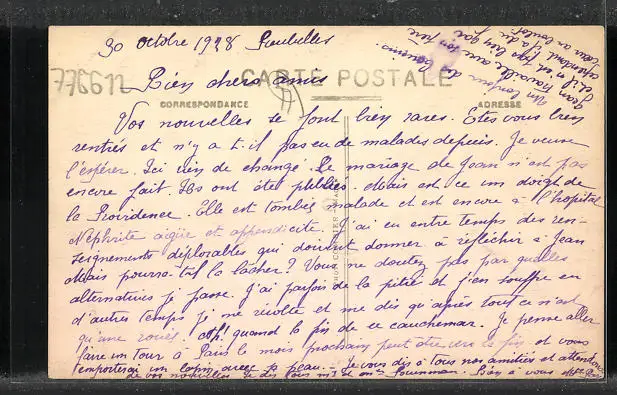 30 octobre 1928
Bien chers amis
CARTE POSTALE
CORRESPONDANCE
ADRESSE
Vos nouvelles se font bien rares. Etes vous bien
rentrés et n'y a t-il pas eu de malades depuis. Je veux
l'espérer. Ici rien de changé. Le mariage de Jean n'est pas
encore fait. Ils ont été publiés. Mais est ce un doigt de
la Providence. Elle est tombée malade et est encore à l'hopital
Néphrite aigüe et appendicite. J'ai eu entre temps des ren-
seignements déplorables qui doivent donner à réfléchir à Jean
Mais pourra-t-il la lacher? Vous ne doutez pas par quelles
alternatives je passe. J'ai parfois de la pitié et j'en souffre en
d'autres temps je me révolte et me dis qu'après tout ce n'est
qu'une rouée. Ah! quand la fin de ce cauchemar. Je pense aller
faire un tour à Paris le mois prochain peut être vers la fin et vous
emporterai un lapin avec sa peau. Je vous dis à tous nos amitiés et attendons
de vos nouvelles
Bien à vous
Jean travaille avec son père
et il n'est pas bien gai